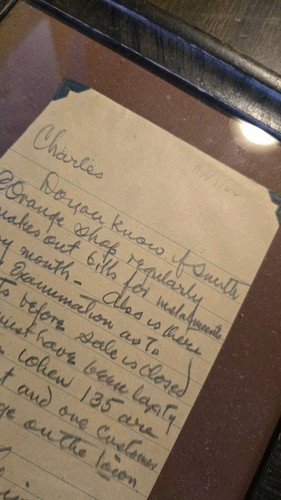 Charles
Do you know if Smith
Orange Shop regularly
makes out bills for instalments
month - Also is there
examination as to
before sale is closed
must have been laxity
when 135 are
and one customer
on the loan